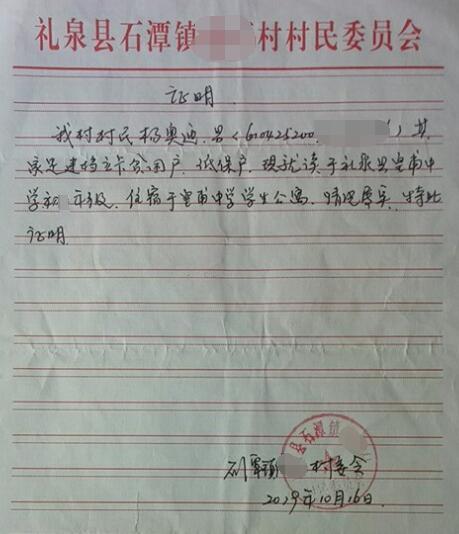 礼泉县石潭镇 村村民委员会
证明
我村村民杨奥迪、男(610425200 )其
家是建档立卡贫困户、低保户、现就读于礼泉县皇甫中
学初 年级、住宿于皇甫中学学生公寓、情况属实、特此
证明.
县石潭镇
石潭镇 村委会
2019年10月16日.